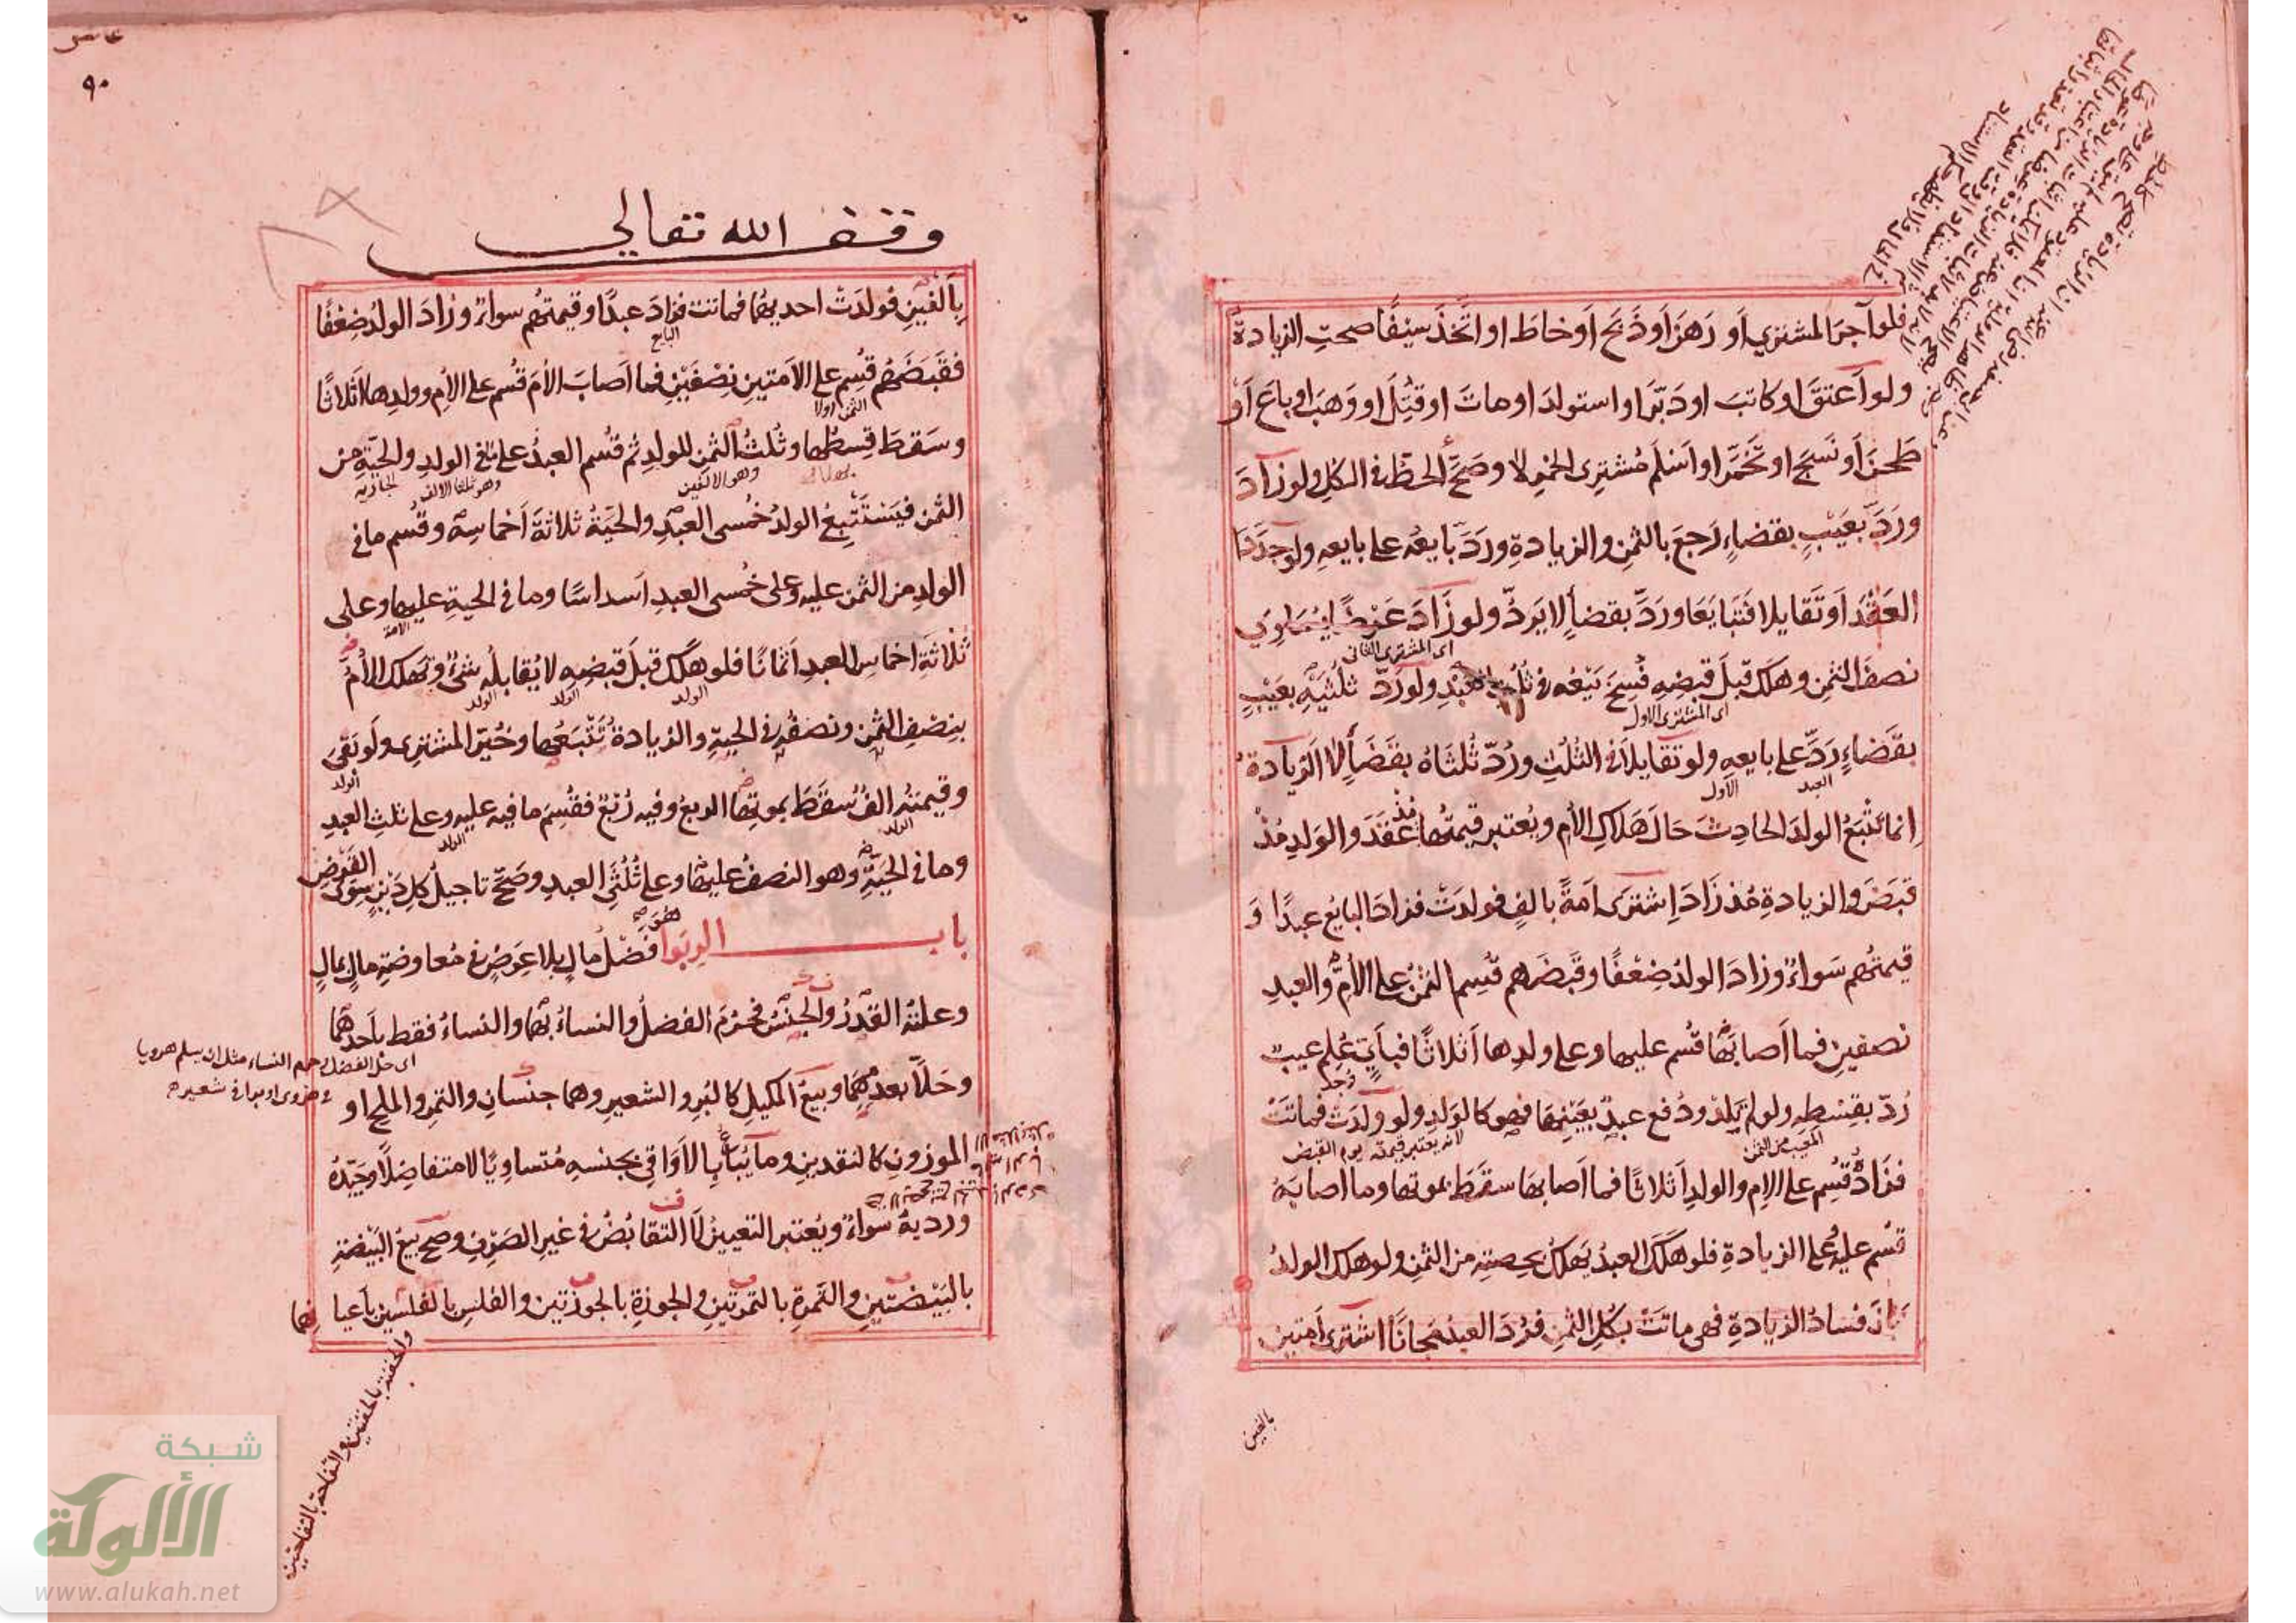 فلو آجر المشتري أو رهن أو ذبح أو خاط او اتخذ سيفا صحت الزيادة
ولو أعتق او كاتب او دبّر او استولد او مات او قُتِل او وَهَب او باع أو
طحن أو نسج او تخمّر او اسلم مُشترى الخمرِ لا وصحّ الحطّ في الكل ولو زاد
وردّ بعَيبٍ بقضاءٍ رَجعَ بالثمن والزيادةِ وردّ بايعُه على بايعهِ ولو جدّدا
العَقْدَ أو تَقايلا فتبايَعا ورَدّ بقضاءٍ لا يردّ ولو زَادَ عَرْضًا يُساوي
اى المشترى الثانى
نصفَ الثمنِ وهلك قبلَ قبضِهِ فُسِخَ بَيْعُه في ثُلُثِ العبدِ ولو ردّ ثلثَيْهِ بعَيْبٍ
اى المشترى الاول
بقَضاءٍ رَدّ على بايعِهِ ولو تقايلا في الثُلُثِ ورُدّ ثُلثَاهُ بقَضَاءٍ لا الزيادةُ
العبد
الاول
إنما تَتْبَعُ الولدَ الحادِثَ حالَ هَلاكِ الأم ويُعتبر قيمتُها مُذْ عَقَدَ والوَلدِ مُذْ
قبَضَ والزيادةِ مُذ زَادَ اِشترَى امَةً بالفٍ فولدَتْ فزادَ البايعُ عبدًا وَ
قيمتُهم سَواءٌ وزاد الولدُ ضِعْفًا وقَبضَهم قُسِم الثمنُ على الأمِّ والعبدِ
نصفينِ فما أصابَها قُسم عليها وعلى ولدِها أثلاثًا فبأيٍّ عُلِم عيبٌ
وُجد
رُدّ بقِسْطِهِ ولو لم يَلِدْ ودُفع عبدٌ بعَيْنِها فهو كالوَلدِ ولو ولَدَتْ فماتَتْ
المعيب من الثمن
لانه يعتبر قيمته يوم القبض
فزَادُ قُسِم على الام والولدِ أثلاثًا فما أصابها سقَطَ بموتها وما أصابَهُ
قُسم عليه وعلى الزيادةِ فلو هَلَكَ العبدُ يَهلكُ بحِصتِه من الثمنِ ولو هلك الولدُ
بانَ فسادُ الزيادةِ فهى ماتَتْ بكُلِ الثمنِ فرُدّ العبدُ مجانًا اشترى أمتين
بالفين
٩٠
وقف الله تعالى
بألفينِ فولدَتْ احديهُما فماتت فزادَ عبدًا وقيمتُهم سواءٌ وزادَ الولدُ ضِعْفًا
البايع
فقَبَضَهُم قُسِم على الأمتينِ نِصْفَيْنِ فما اَصابَ الأمَ قُسُم على الأمِ وولدِها اثلاثًا
الثمن اولا
وسَقطَ قِسطُها وثُلثُ الثمنِ للولدِ ثم قُسُم العبدُ على ما في الولدِ والحيّةِ من
بهلاك
وهو الالفين
وهو ثلثا الالف
الجارية
الثمن فيَسْتَتْبِعُ الولدُ خُمسى العبدِ والحيّةُ ثلاثةَ أخماسِه وقُسِم ما في
الولدِ من الثمن عليه وعلى خُمسى العبدِ أسداسًا وما في الحيةِ عليها وعلى
الامة
ثلاثةِ اخماسِ العبدِ أثمانًا فلو هلَكَ قبلَ قبضِهِ لا يُقابلُه شئٌ وتهلك الأُمّ
الولد
الولد
الولد
بنِصْفِ الثمنِ ونصفُه في الحيةِ والزيادةُ تَتْبَعُها وخُيّر المشترى ولَو بَقىَ
الولد
وقيمتُه الفٌ سقَطَ بموتِها الربعُ وفيه رُبْعٌ فقُسِمَ ما فيه عليه وعلى ثلثِ العبدِ
الولد
الولد
وما في الحيّةِ وهو النصفُ عليها وعلى ثُلُثَيِ العبدِ وصَحّ تاجيلُ كلِ دَيْنٍ سِوَى القَرْضِ
باب الربوا هُوَ فضْلُ مالٍ بلا عِوَضٍ في مُعاوضةِ مالٍ بمالٍ
وعلتُه القَدْرُ والجِنْسُ فحَرُمَ الفضلُ والنساءُ بهما والنساءُ فقط بأحدهما
اى حل الفضل وحرم النساء مثل ان يسلم هرويا
في هروى او برا في شعير
وحَلّا بعدمِهِما وبيعُ المكيلِ كالبُرِ والشعيرِ وهما جنسانِ والتمرِ والملحِ او
الموزونِ كالنقدينِ وما يُباعُ بالأوَاقى بجنسهِ مُتساويًا لا متفاضلًا وجَيّدُه
ورديهُ سَواءٌ ويُعتبر التعيينُ لا التقابُضُ في غيرِ الصَرْفِ وصح بيعُ البَيْضةِ
بالبَيْضتينِ والتَمرةِ بالتمرتَينِ والجوزةِ بالجوزتينِ والفلسِ بالفلسَينِ بأعيانِها
والحفنة بالحفنتين والتفاحة بالتفاحتين
شبكة
الألوكة
www.alukah.net